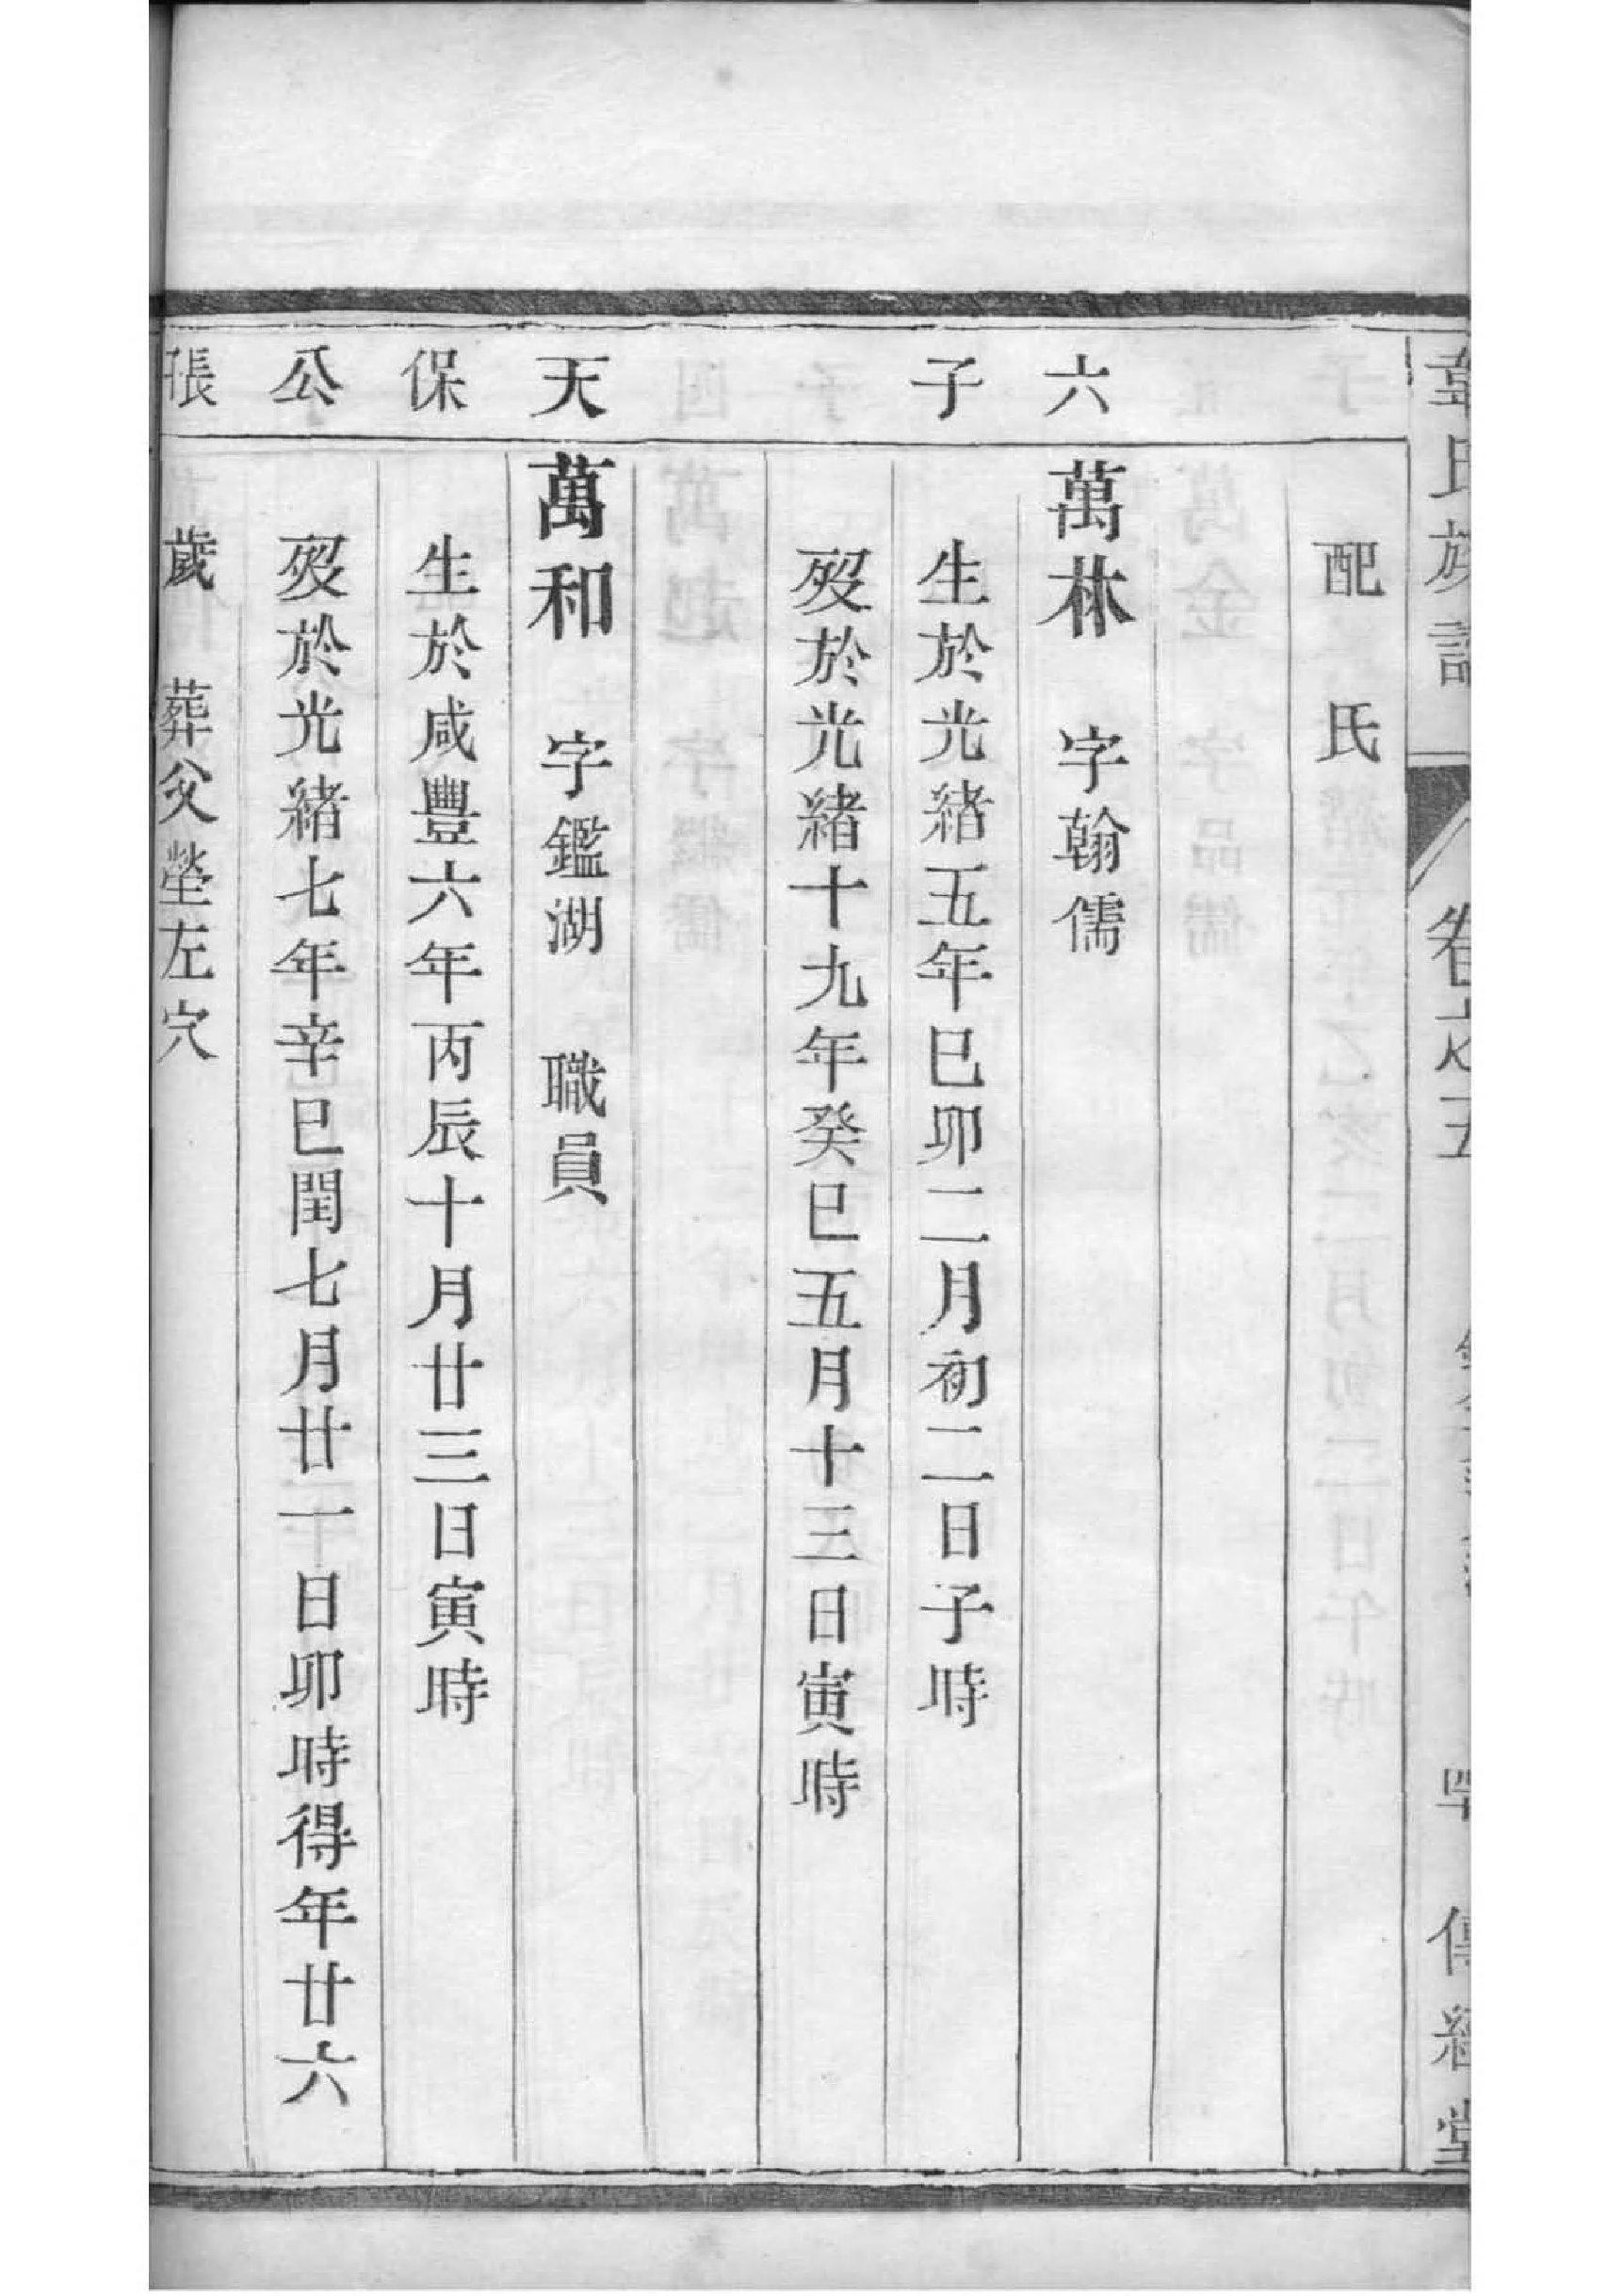 氏族譜
卷之五
傳經堂
配 氏
六 萬林 字翰儒
子 生於光緒五年巳卯二月初二日子時
歿於光緒十九年癸巳五月十三日寅時
天 萬和 字鑑湖 職員
保 生於咸豐六年丙辰十月廿三日寅時
公 歿於光緒七年辛巳閏七月廿一日卯時得年廿六
張 歲 葬父塋左穴